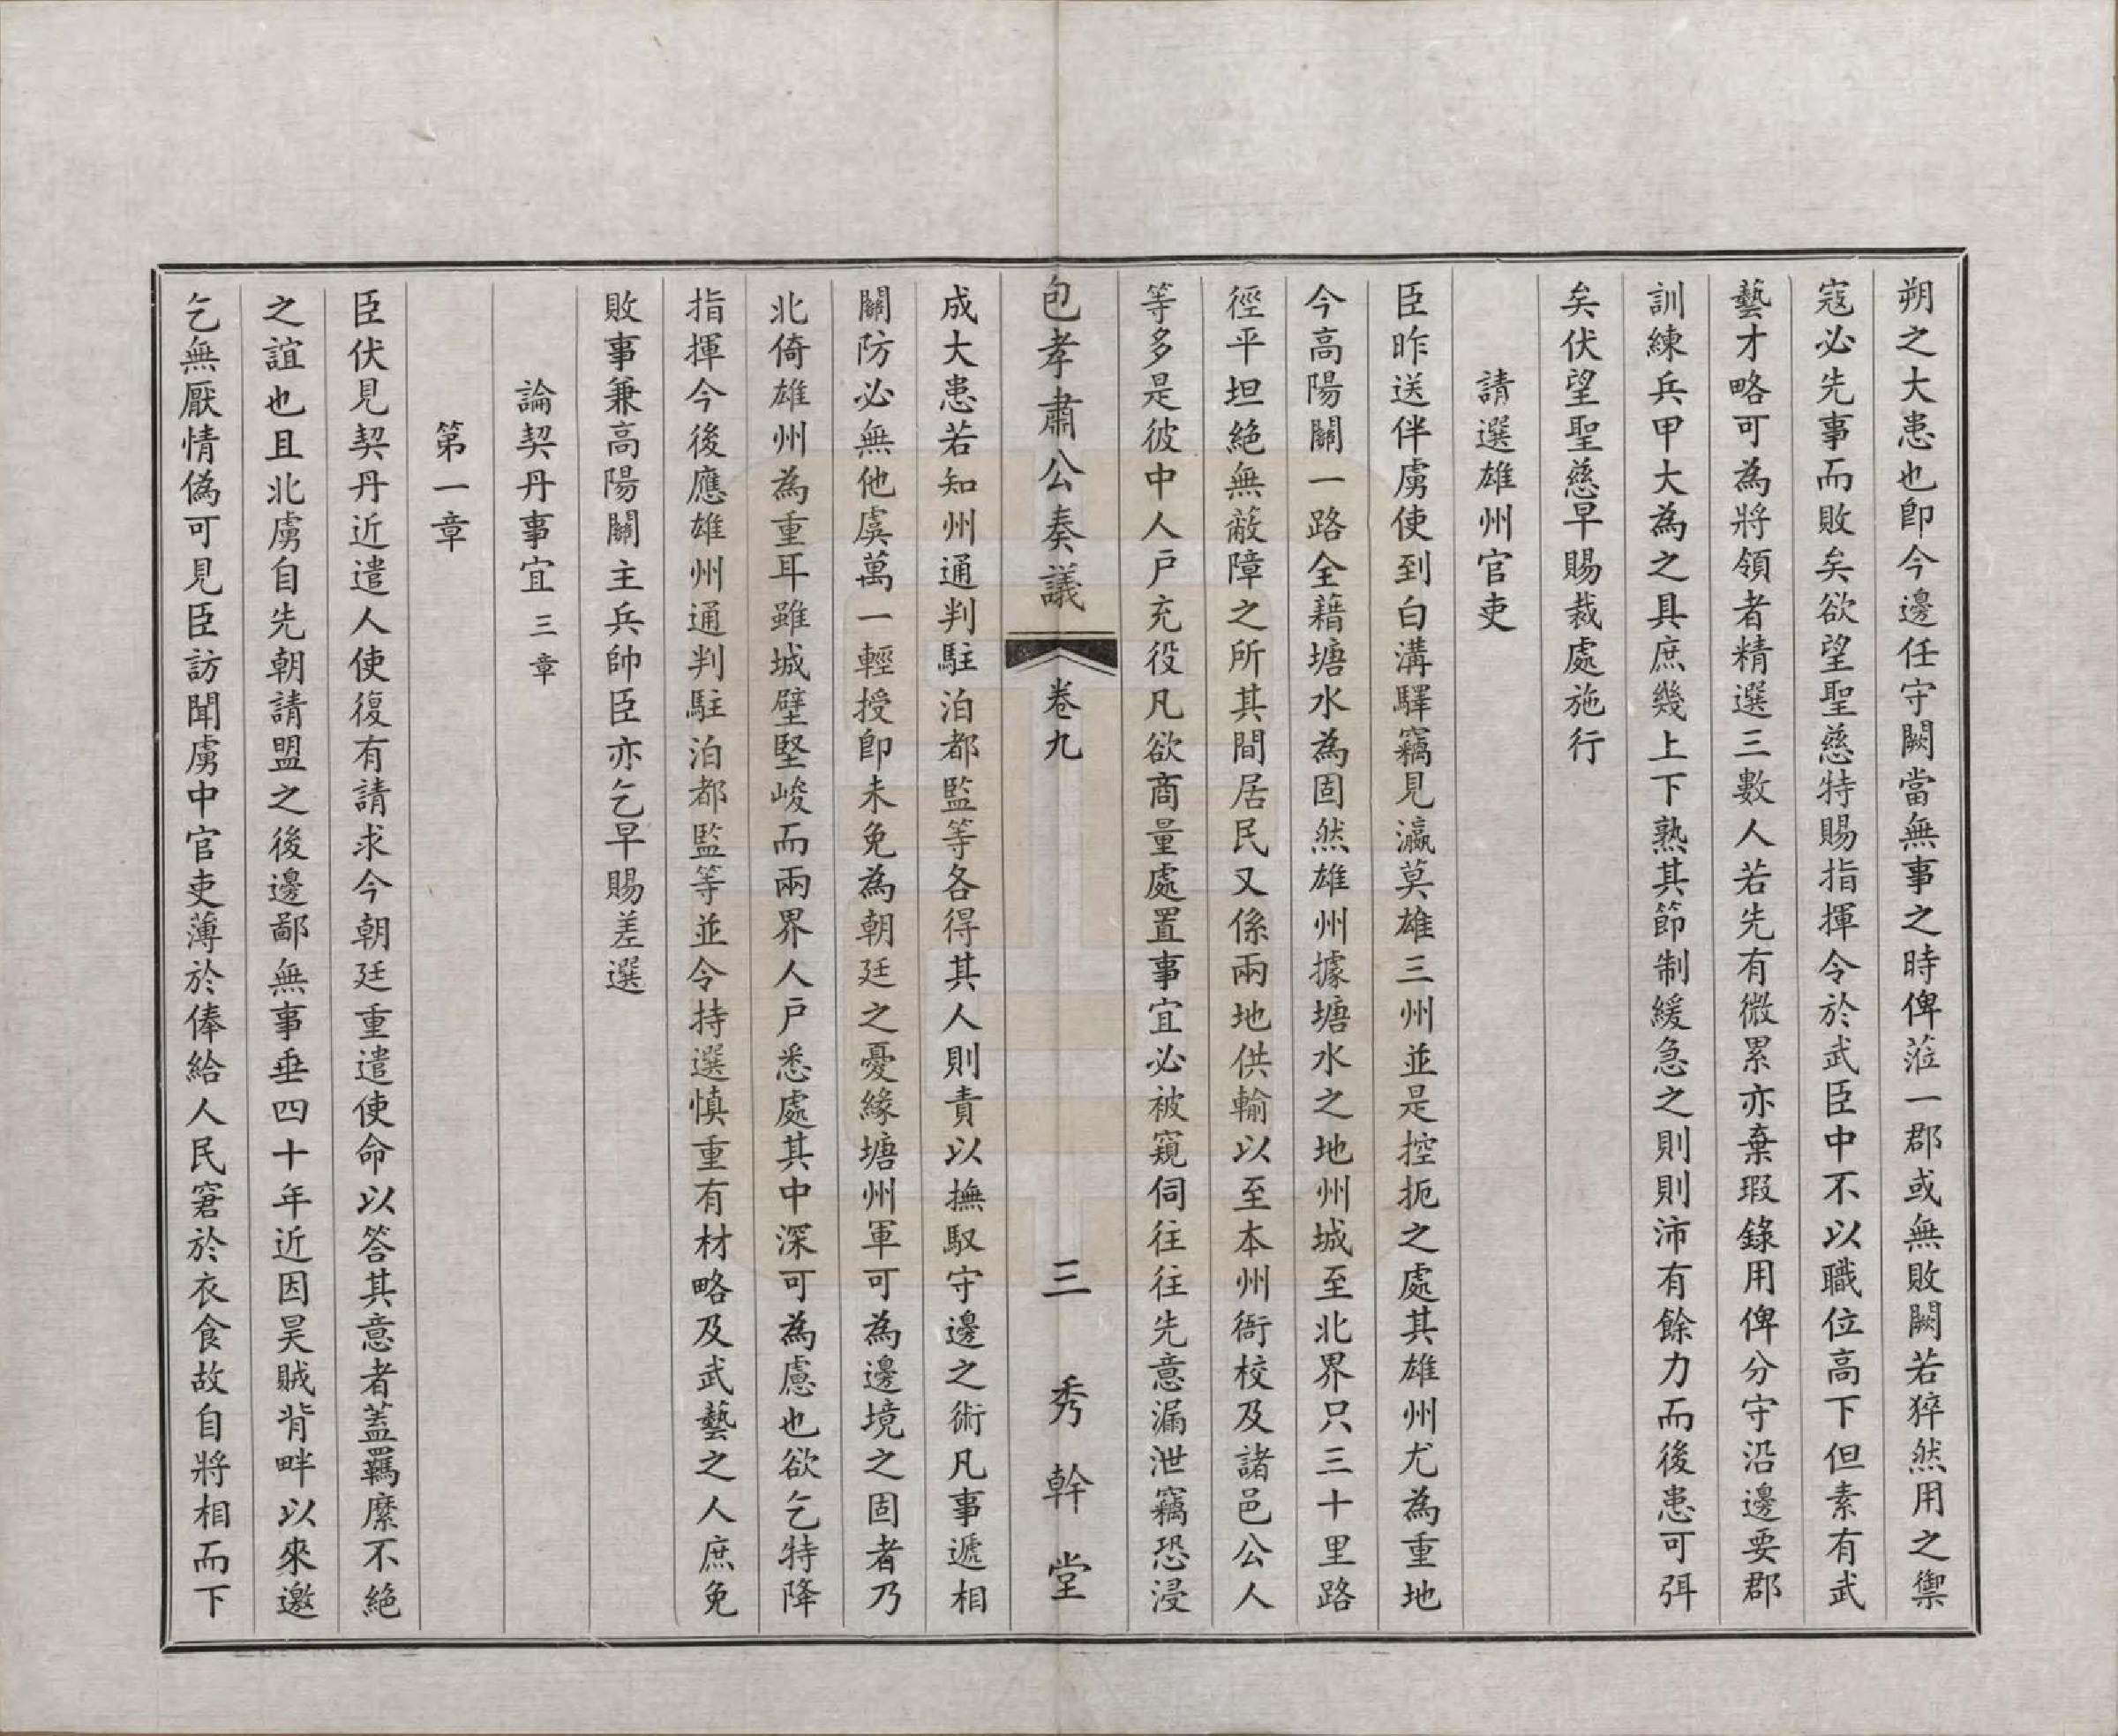 朔之大患也卽今邊任守闕當無事之時俾蒞一郡或無敗闕若猝然用之禦
寇必先事而敗矣欲望聖慈特賜指揮令於武臣中不以職位高下但素有武
藝才略可為將領者精選三數人若先有微累亦棄瑕錄用俾分守沿邊要郡
訓練兵甲大為之具庶幾上下熟其節制緩急之則則沛有餘力而後患可弭
矣伏望聖慈早賜裁處施行
請選雄州官吏
臣昨送伴虜使到白溝驛竊見瀛莫雄三州並是控扼之處其雄州尤為重地
今高陽關一路全藉塘水為固然雄州據塘水之地州城至北界只三十里路
徑平坦絕無蔽障之所其間居民又係兩地供輸以至本州衙校及諸邑公人
等多是彼中人戶充役凡欲商量處置事宜必被窺伺往往先意漏泄竊恐浸
包孝肅公奏議 卷九 三 秀幹堂
成大患若知州通判駐泊都監等各得其人則責以撫馭守邊之術凡事遞相
關防必無他虞萬一輕授卽未免為朝廷之憂緣塘州軍可為邊境之固者乃
北倚雄州為重耳雖城壁堅峻而兩界人戶悉處其中深可為慮也欲乞特降
指揮今後應雄州通判駐泊都監等並令持選慎重有材略及武藝之人庶免
敗事兼高陽關主兵帥臣亦乞早賜差選
論契丹事宜 三章
第一章
臣伏見契丹近遣人使復有請求今朝廷重遣使命以答其意者蓋羈縻不絕
之誼也且北虜自先朝請盟之後邊鄙無事垂四十年近因昊賊背畔以來邀
乞無厭情偽可見臣訪聞虜中官吏薄於俸給人民窘於衣食故自將相而下